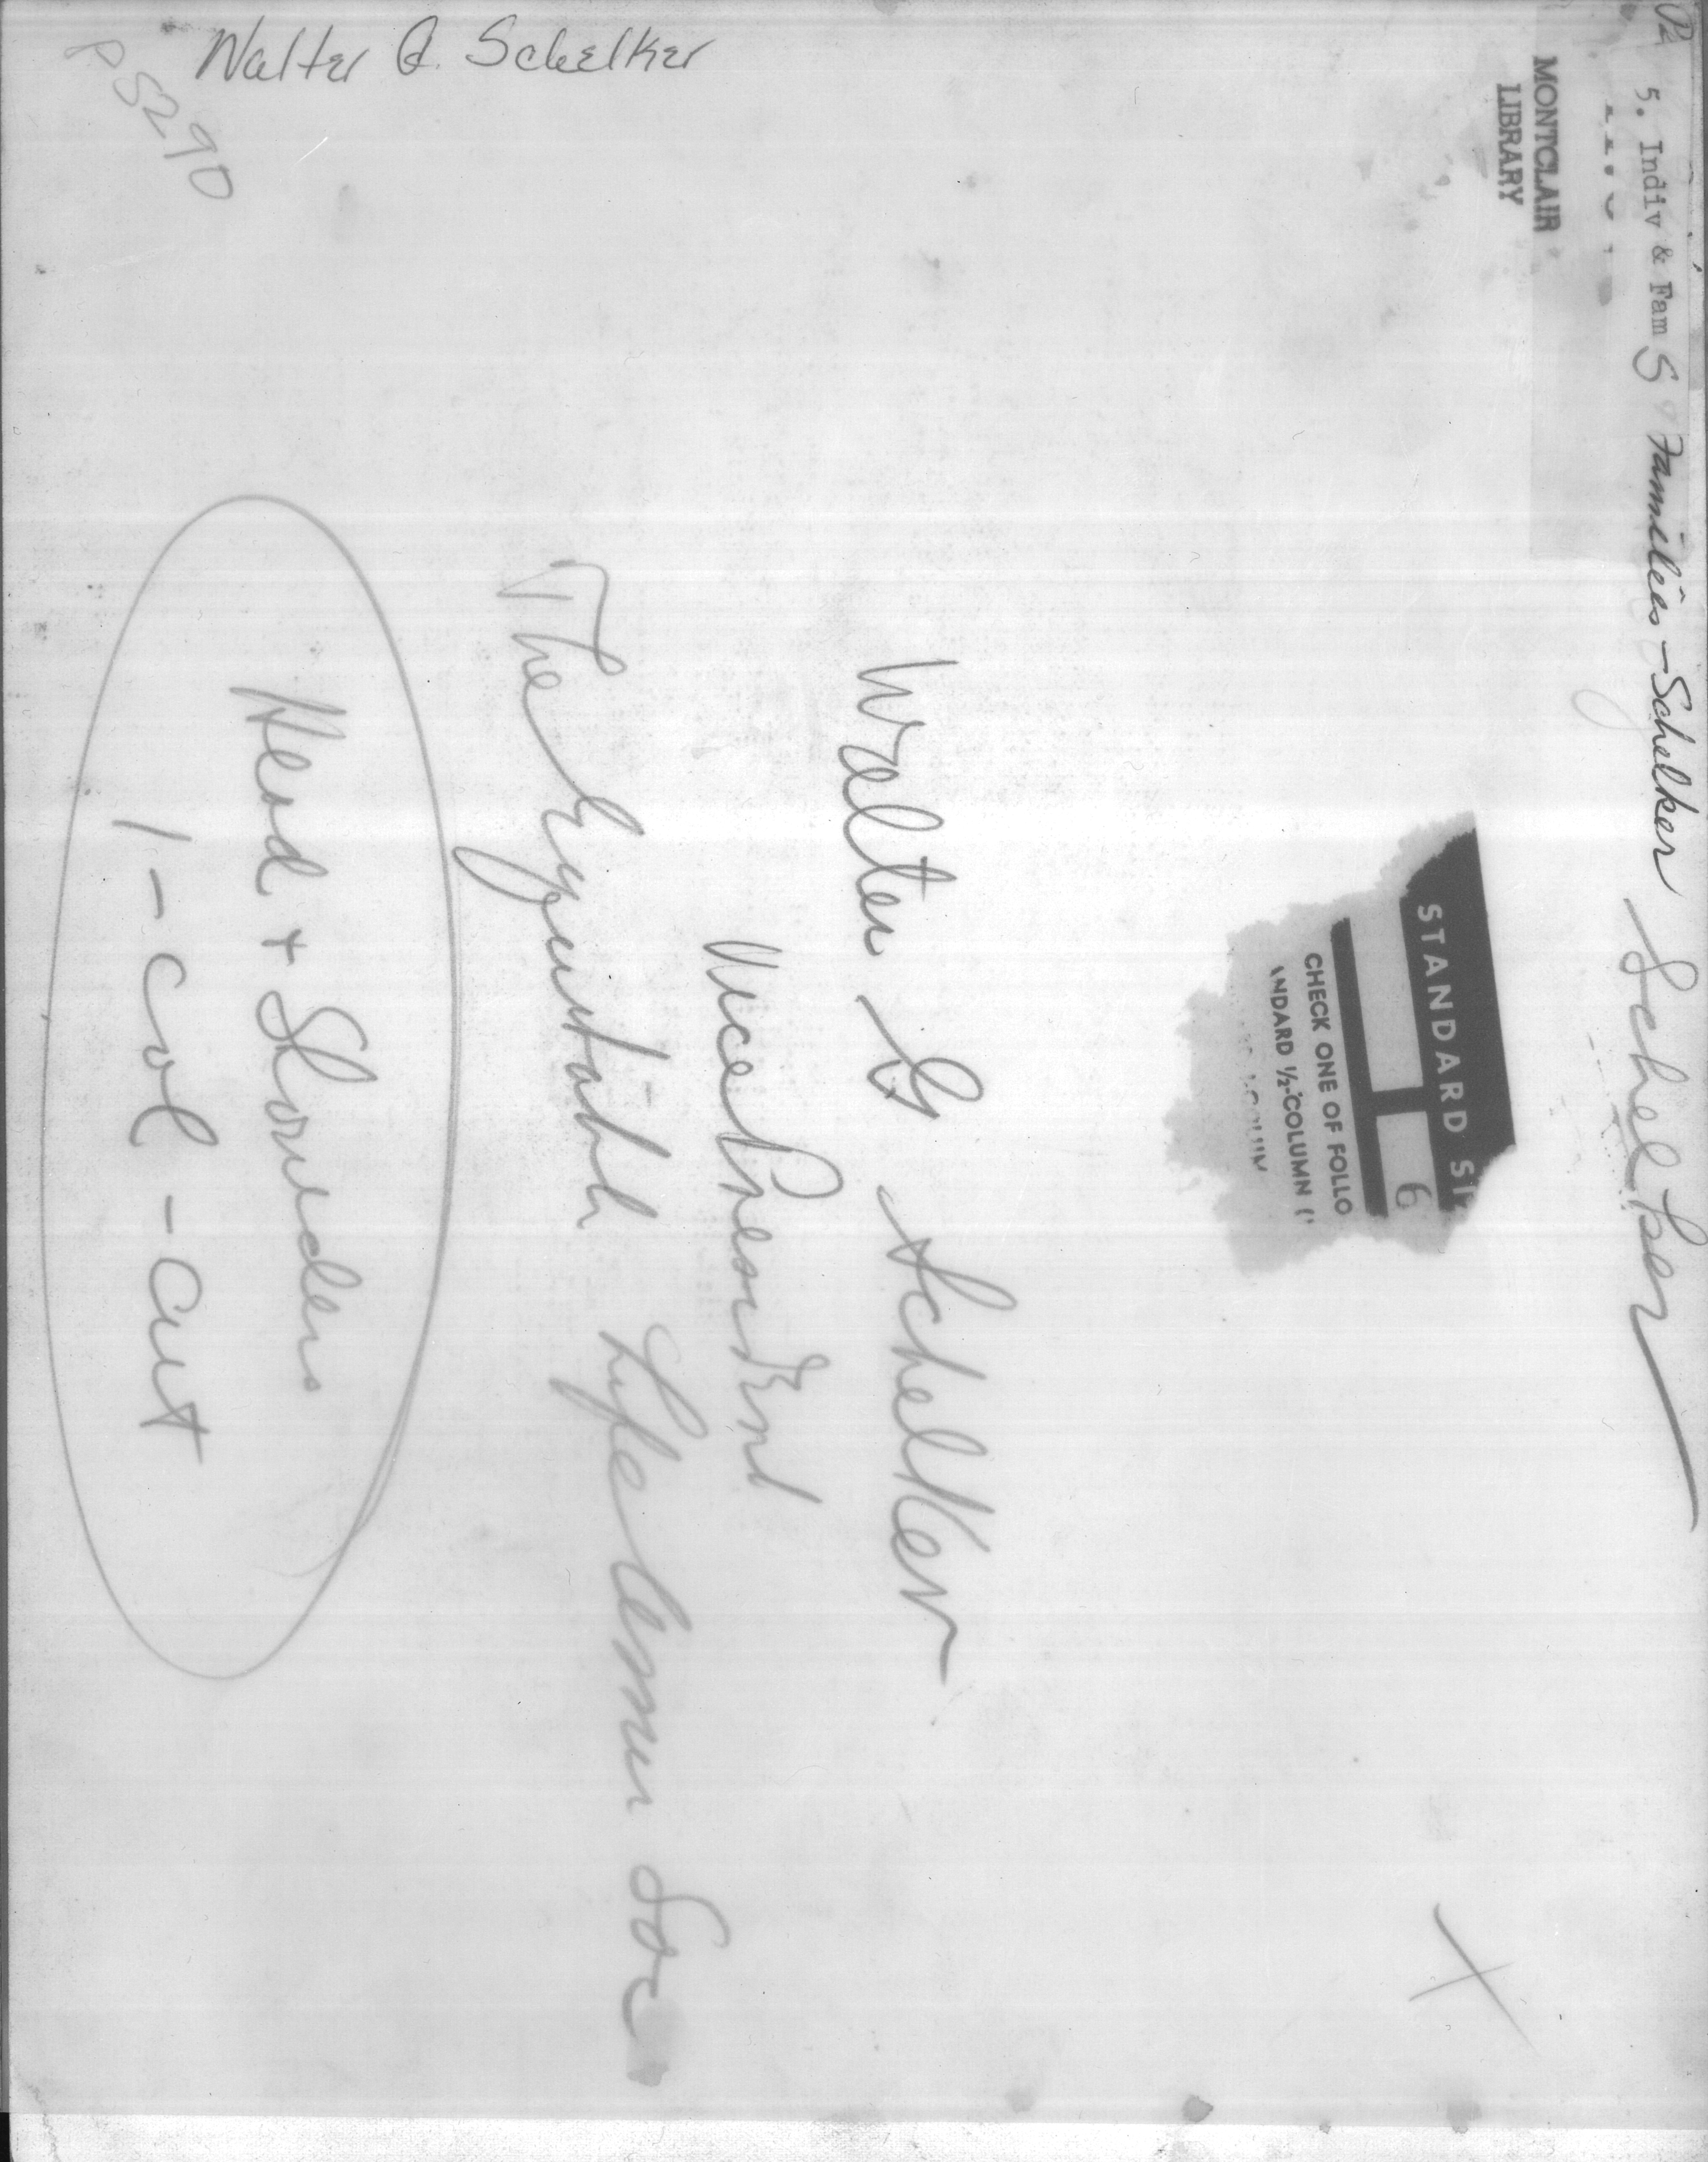 Walter G. Schelker
PS290
5. Indiv & Fam S Families - Schelker Schelker
MONTCLAIR
LIBRARY
STANDARD
6
CHECK ONE OF FOLLO
NDARD ½-COLUMN ('
Walter G Schelker
Vice President
The Equitable Life Assur Soc
Head + Shoulders
1 - col - cut
X